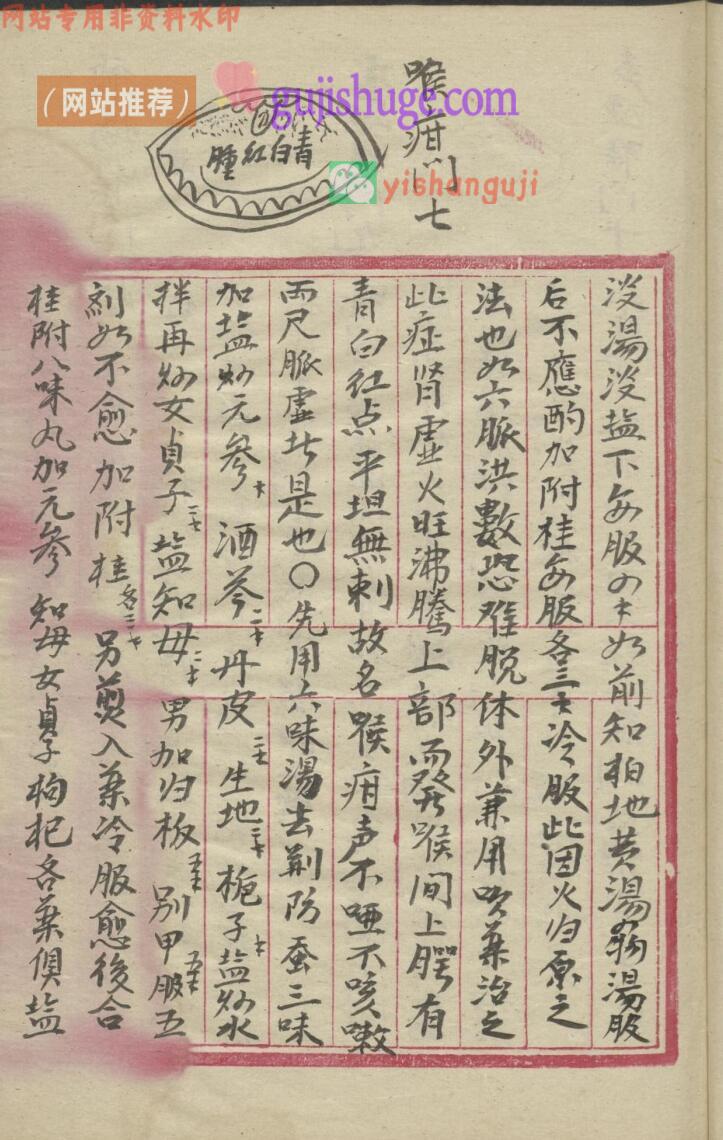 网站专用非资料水印
（网站推荐）
gujishuge.com
yishanguji
喉疳門七
青白紅腫
没湯没塩下每服四錢如前知柏地黄湯湯服
后不應酌加附桂每服各三錢冷服此因火归原之
法也如六脈洪數恐难脱体外兼用吹藥治之
此症肾虚火旺沸騰上部而發喉间上腭有
青白红点平坦無刺故名喉疳声不哑不咳嗽
两尺脈虚者是也〇先用六味湯去荆防蚕三味
加塩炒元参 酒芩 丹皮 生地 梔子塩炒水
拌再炒女貞子 塩知母 男加归板 别甲服五
剂如不愈加附桂各 另煎入藥冷服愈後合
桂附八味丸加元参知母女貞子枸杞各藥俱塩